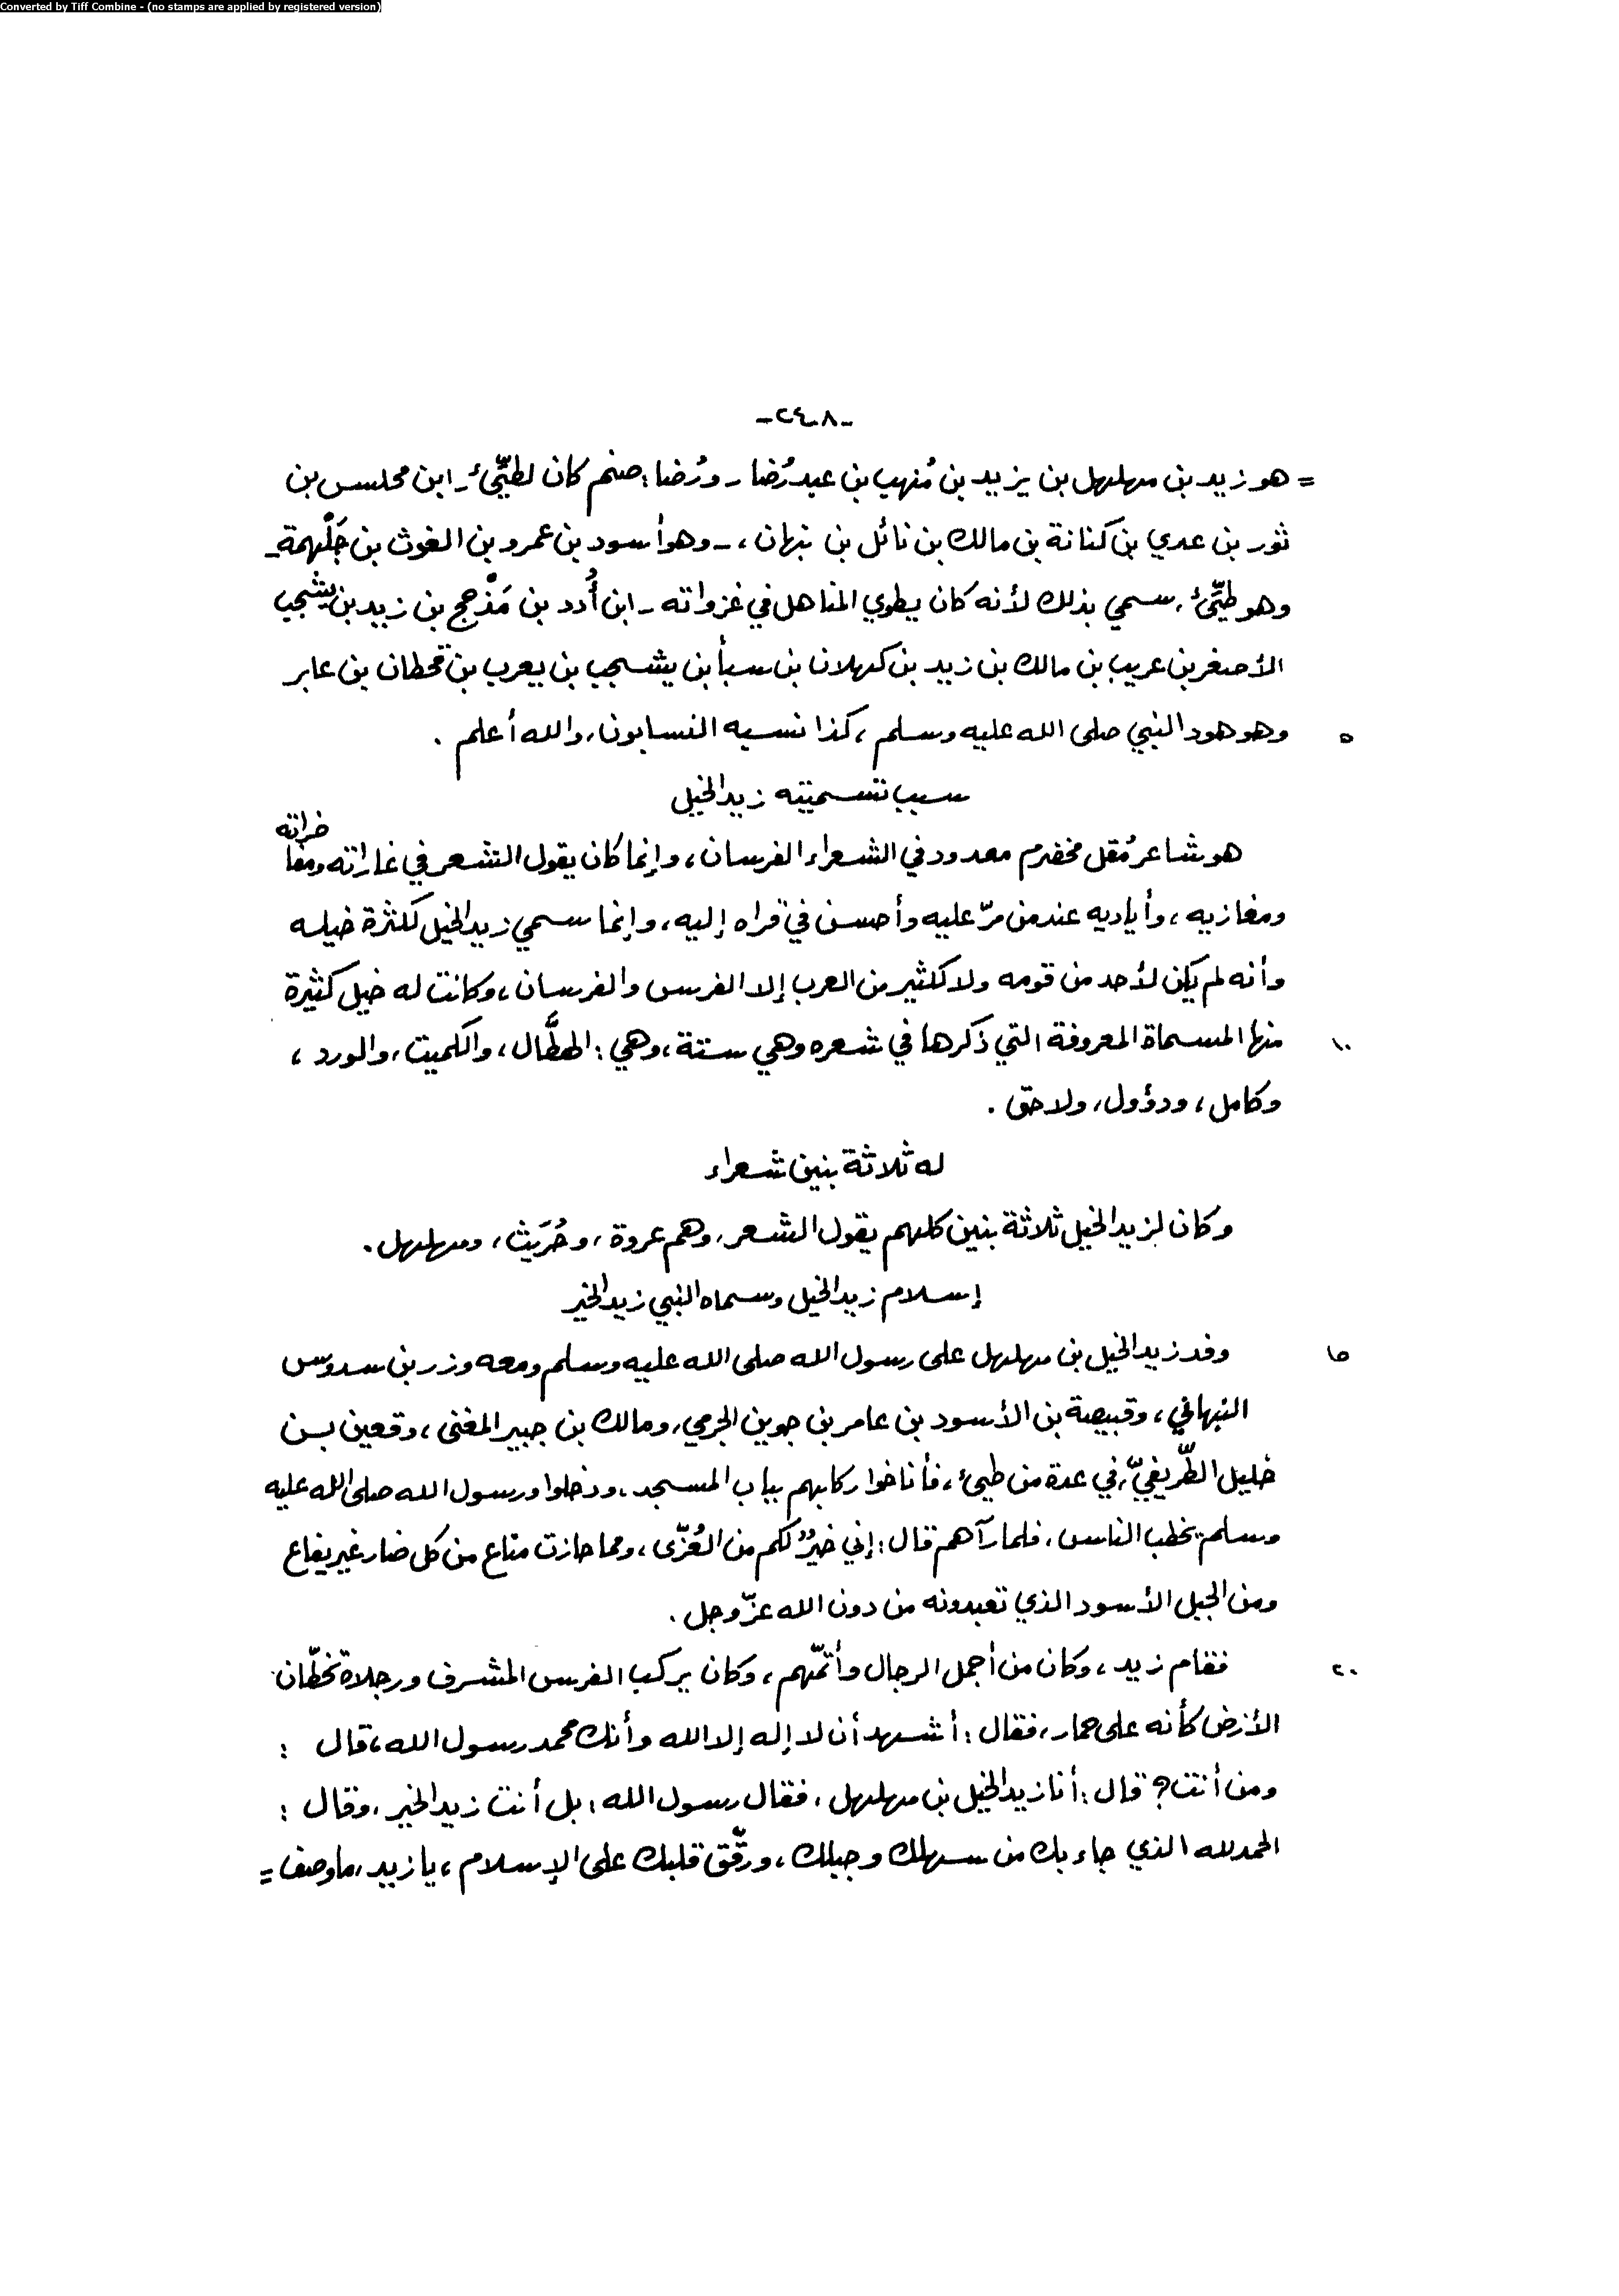 Converted by Tiff Combine - (no stamps are applied by registered version)
-٢٤٠٨-
= هو زيد بن مهلهل بن يزيد بن مُنهب بن عبد رُضا - ورُضا : صنم كان لطيِّئ - ابن محلس بن
ثور بن عدي بن كنانة بن مالك بن نائل بن نبهان ، - وهو أسود بن عمرو بن الغوث بن جَلْهمة -
وهو طيِّئ ، سمي بذلك لأنه كان يطوي المناهل في غزواته - ابن أُدد بن مَذْحج بن زيد بن يشجب
الأصغر بن عريب بن مالك بن زيد بن كهلان بن سبأ بن يشجب بن يعرب بن قحطان بن عابر
٥ وهو هود النبي صلى الله عليه وسلم ، كذا نسبه النسابون ، والله أعلم .
سبب تسميته زيد الخيل
هو شاعر مُقل مخضرم معدود في الشعراء الفرسان ، وإنما كان يقول الشعر في غاراته ومفاخراته
ومغازيه ، وأياديه عند من مرّ عليه وأحسن في قراه إليه ، وإنما سمي زيد الخيل لكثرة خيله
وأنه لم يكن لأحد من قومه ولا لكثير من العرب إلا الفرس والفرسان ، وكانت له خيل كثيرة
١٠ منها المسماة المعروفة التي ذكرها في شعره وهي ستة ، وهي : الهطَّال ، والكميت ، والورد ،
وكامل ، ودؤول ، ولاحق .
له ثلاثة بنين شعراء
وكان لزيد الخيل ثلاثة بنين كلهم يقول الشعر ، وهم عروة ، وحُرَيث ، ومهلهل .
إسلام زيد الخيل وسماه النبي زيد الخير
١٥ وفد زيد الخيل بن مهلهل على رسول الله صلى الله عليه وسلم ومعه وزر بن سدوس
النبهاني ، وقبيصة بن الأسود بن عامر بن جوين الجرمي ، ومالك بن جبير المغنى ، وقعين بن
خليل الطّريفيّ ، في عدة من طيئ ، فأناخوا ركابهم بباب المسجد ، ودخلوا ورسول الله صلى الله عليه
وسلم يخطب الناس ، فلما رآهم قال : إني خيرٌ لكم من العُزّى ، ومما حازت مناع من كل ضار غير يفاع
ومن الجبل الأسود الذي تعبدونه من دون الله عزّ وجل .
٢٠ فقام زيد ، وكان من أجمل الرجال وأتمّهم ، وكان يركب الفرس المشرف ورجلاه تخطّان
الأرض كأنه على حمار ، فقال : أشهد أن لا إله إلا الله وأنك محمد رسول الله ، قال :
ومن أنت ؟ قال : أنا زيد الخيل بن مهلهل ، فقال رسول الله : بل أنت زيد الخير ، وقال :
الحمد لله الذي جاء بك من سهلك وجبلك ، ورقّق قلبك على الإسلام ، يا زيد ، ما وصف =